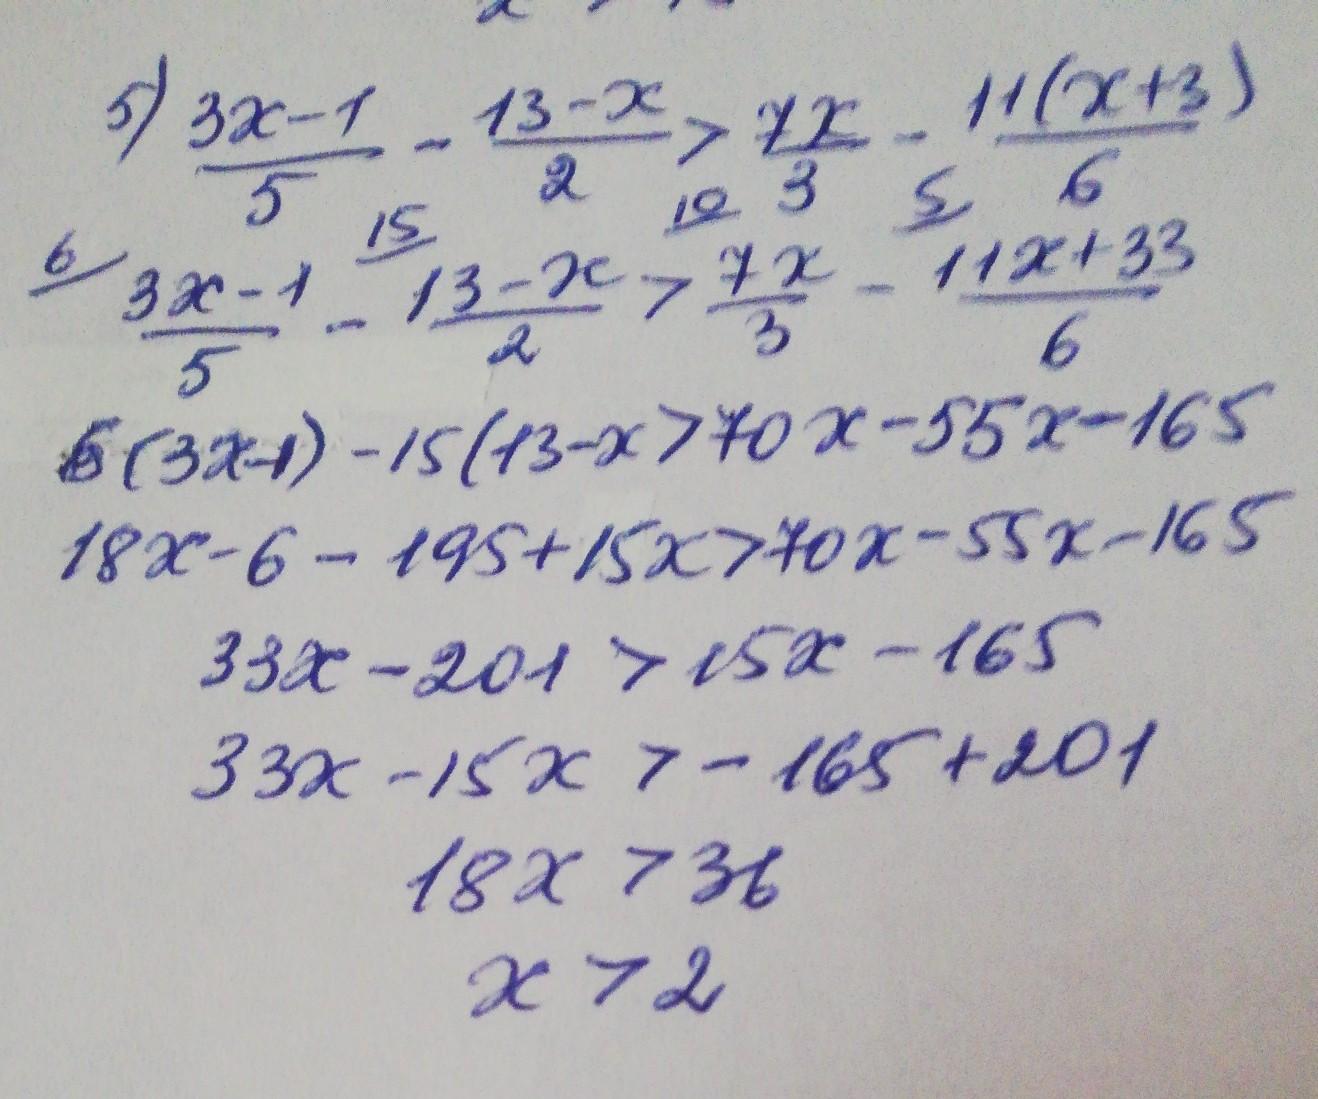 5) (3x-1)/5 - (13-x)/2 > 7x/3 - 11(x+3)/6
6/ (3x-1)/5 - 15/ (13-x)/2 > 10/ 7x/3 - 5/ (11x+33)/6
6(3x-1) - 15(13-x > 70x - 55x - 165
18x - 6 - 195 + 15x > 70x - 55x - 165
33x - 201 > 15x - 165
33x - 15x > - 165 + 201
18x > 36
x > 2